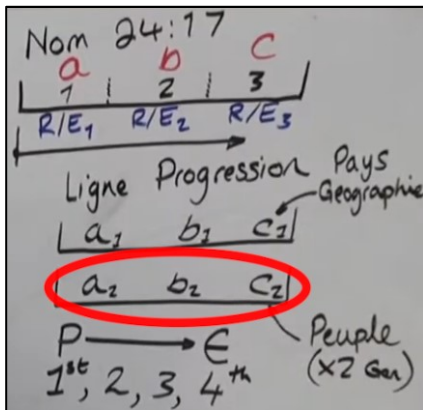 Nom 24:17
a b c
1 2 3
R/E1 R/E2 R/E3
Ligne Progression
Pays
Geographie
a1 b1 c1
a2 b2 c2
P → E
Peuple
(x2 Gen)
1st, 2, 3, 4th